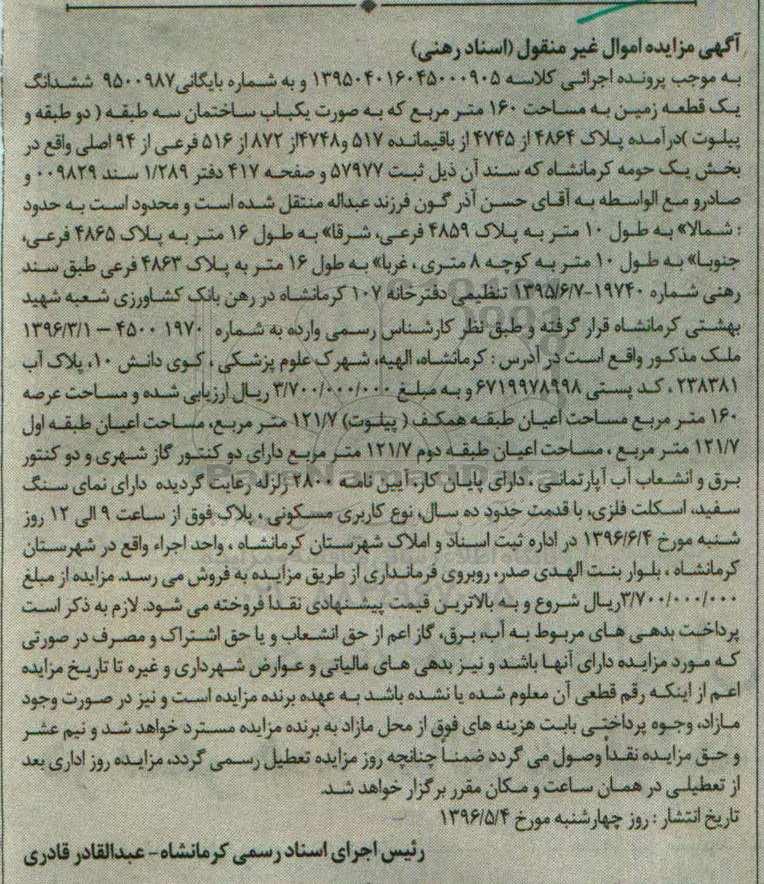 آگهی مزایده اموال غیر منقول (اسناد رهنی)
به موجب پرونده اجرائی کلاسه ۱۳۹۵۰۴۰۱۶۰۴۵۰۰۰۹۰۵ و به شماره بایگانی۹۵۰۰۹۸۷ ششدانگ
یک قطعه زمین به مساحت ۱۶۰ متر مربع که به صورت یکباب ساختمان سه طبقه ( دو طبقه و
پیلوت )درآمده پلاک ۴۸۶۴ از ۴۷۴۵ از باقیمانده ۵۱۷ و۴۷۴۸از ۸۷۲ از ۵۱۶ فرعی از ۹۴ اصلی واقع در
بخش یک حومه کرمانشاه که سند آن ذیل ثبت ۵۷۹۷۷ و صفحه ۴۱۷ دفتر ۱/۲۸۹ سند ۰۰۹۸۲۹ و
صادرو مع الواسطه به آقای حسن آذر گون فرزند عبداله منتقل شده است و محدود است به حدود
: شمالا» به طول ۱۰ متر به پلاک ۴۸۵۹ فرعی، شرقا» به طول ۱۶ متر به پلاک ۴۸۶۵ فرعی،
جنوبا» به طول ۱۰ متر به کوچه ۸ متری ، غربا» به طول ۱۶ متر به پلاک ۴۸۶۳ فرعی طبق سند
رهنی شماره ۱۹۷۴۰-۱۳۹۵/۶/۷ تنظیمی دفترخانه ۱۰۷ کرمانشاه در رهن بانک کشاورزی شعبه شهید
بهشتی کرمانشاه قرار گرفته و طبق نظر کارشناس رسمی وارده به شماره ۱۹۷۰ ۴۵۰۰ – ۱۳۹۶/۳/۱
ملک مذکور واقع است در آدرس : کرمانشاه، الهیه، شهرک علوم پزشکی ، کوی دانش ۱۰، پلاک آب
۲۳۸۳۸۱ ، کد پستی ۶۷۱۹۹۷۸۹۹۸ و به مبلغ ۳/۷۰۰/۰۰۰/۰۰۰ ریال ارزیابی شده و مساحت عرصه
۱۶۰ متر مربع مساحت اعیان طبقه همکف ( پیلوت) ۱۲۱/۷ متر مربع، مساحت اعیان طبقه اول
۱۲۱/۷ متر مربع ، مساحت اعیان طبقه دوم ۱۲۱/۷ متر مربع دارای دو کنتور گاز شهری و دو کنتور
برق و انشعاب آب آپارتمانی ، دارای پایان کار، آیین نامه ۲۸۰۰ زلزله رعایت گردیده دارای نمای سنگ
سفید، اسکلت فلزی، با قدمت حدود ده سال، نوع کاربری مسکونی ، پلاک فوق از ساعت ۹ الی ۱۲ روز
شنبه مورخ ۱۳۹۶/۶/۴ در اداره ثبت اسناد و املاک شهرستان کرمانشاه ، واحد اجراء واقع در شهرستان
کرمانشاه ، بلوار بنت الهدی صدر، روبروی فرمانداری از طریق مزایده به فروش می رسد. مزایده از مبلغ
۳/۷۰۰/۰۰۰/۰۰۰ریال شروع و به بالاترین قیمت پیشنهادی نقدا فروخته می شود. لازم به ذکر است
پرداخت بدهی های مربوط به آب، برق، گاز اعم از حق انشعاب و یا حق اشتراک و مصرف در صورتی
که مورد مزایده دارای آنها باشد و نیز بدهی های مالیاتی و عوارض شهرداری و غیره تا تاریخ مزایده
اعم از اینکه رقم قطعی آن معلوم شده یا نشده باشد به عهده برنده مزایده است و نیز در صورت وجود
مازاد، وجوه پرداختی بابت هزینه های فوق از محل مازاد به برنده مزایده مسترد خواهد شد و نیم عشر
و حق مزایده نقداً وصول می گردد ضمناً چنانچه روز مزایده تعطیل رسمی گردد، مزایده روز اداری بعد
از تعطیلی در همان ساعت و مکان مقرر برگزار خواهد شد.
تاریخ انتشار : روز چهارشنبه مورخ ۱۳۹۶/۵/۴
رئیس اجرای اسناد رسمی کرمانشاه- عبدالقادر قادری